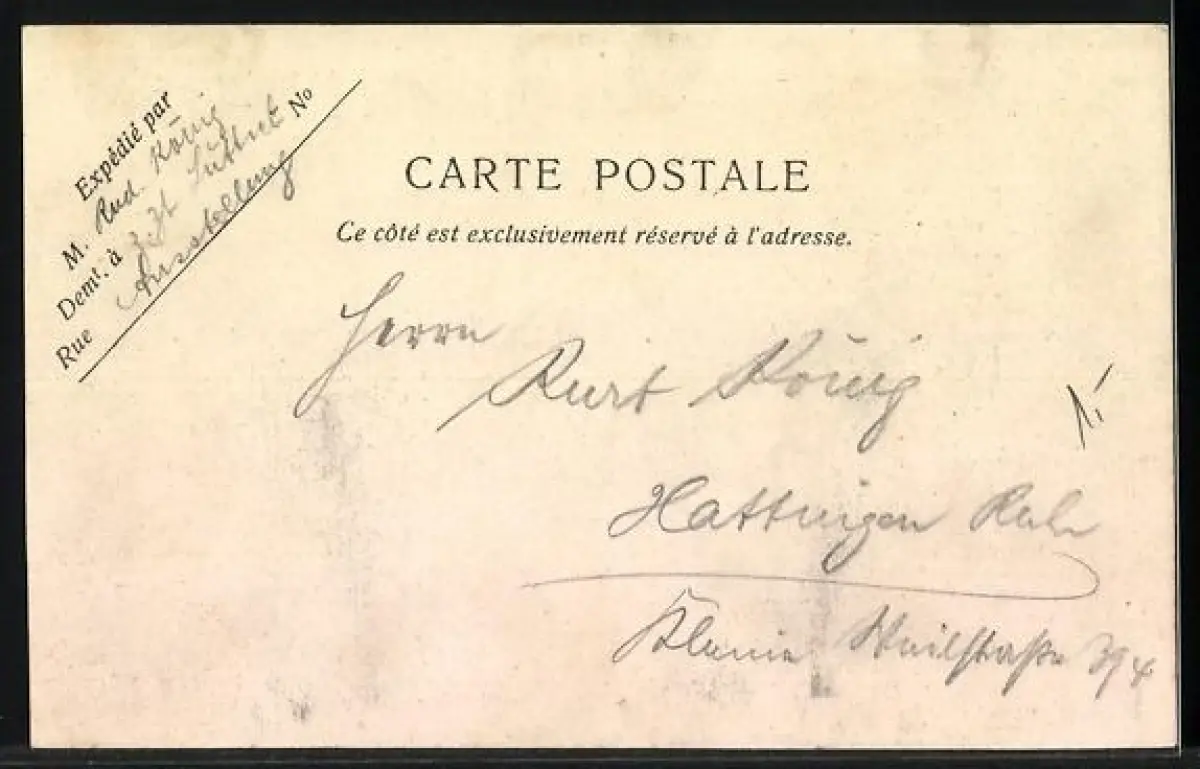 Expédié par
M. Rud. König
Demt. à z. Zt Lüttich No
Rue Ausstellung
CARTE POSTALE
Ce côté est exclusivement réservé à l'adresse.
Herrn
Kurt König
Hattingen Ruhr
Kleine Weilstraße